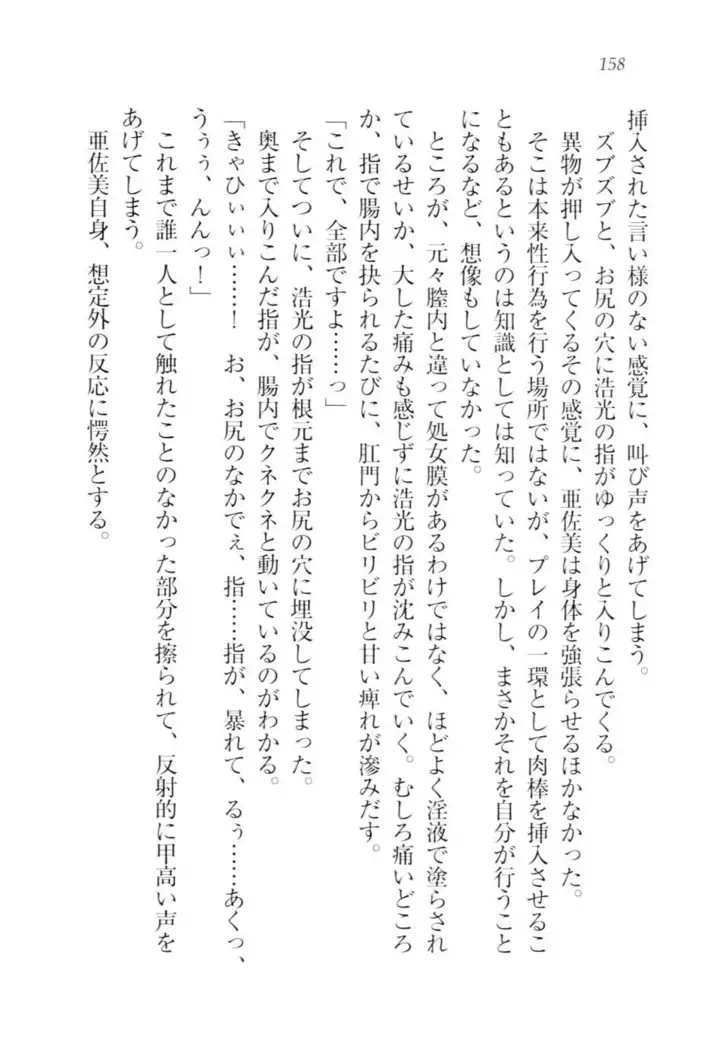 158
挿入された言い様のない感覚に、叫び声をあげてしまう。
ズブズブと、お尻の穴に浩光の指がゆっくりと入りこんでくる。
異物が押し入ってくるその感覚に、亜佐美は身体を強張らせるほかなかった。
そこは本来性行為を行う場所ではないが、プレイの一環として肉棒を挿入させるこ
ともあるというのは知識としては知っていた。しかし、まさかそれを自分が行うこと
になるなど、想像もしていなかった。
ところが、元々膣内と違って処女膜があるわけではなく、ほどよく淫液で塗らされ
ているせいか、大した痛みも感じずに浩光の指が沈みこんでいく。むしろ痛いどころ
か、指で腸内を抉られるたびに、肛門からビリビリと甘い痺れが滲みだす。
「これで、全部ですよ……っ」
そしてついに、浩光の指が根元までお尻の穴に埋没してしまった。
奥まで入りこんだ指が、腸内でクネクネと動いているのがわかる。
「きゃひぃぃぃ……！　お、お尻のなかでぇ、指……指が、暴れて、るぅ……あくっ、
うぅぅ、んんっ！」
これまで誰一人として触れたことのなかった部分を擦られて、反射的に甲高い声を
あげてしまう。
亜佐美自身、想定外の反応に愕然とする。